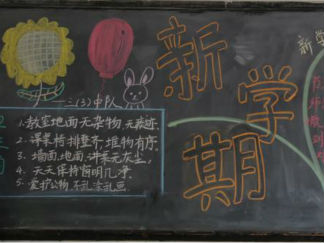 新学期
三(3)中队
1. 教室地面无杂物,无痰迹.
2. 课桌椅排整齐,堆物有序.
3. 墙面,地面,讲桌无灰尘,
4. 天天保持窗明几净.
5. 爱护公物,不乱涂乱画.
新学